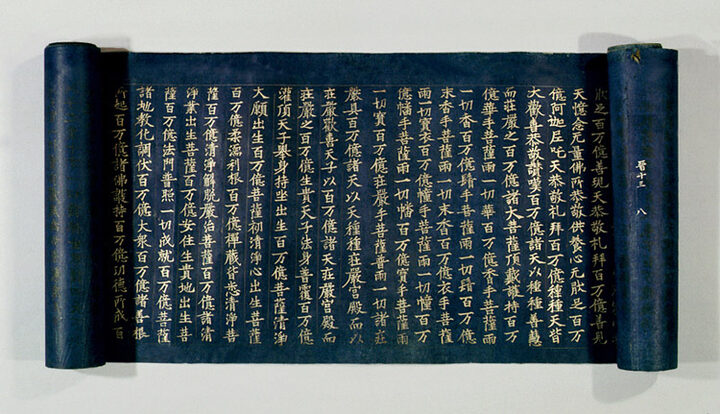 晉十三 八
猒足百万億善現天恭敬礼拜百万億善見
天憶念无量佛所恭敬供養心无猒足百万
億阿迦尼吒天恭敬礼拜百万億種種天皆
大歡喜恭敬讚嘆百万億諸天以種種善慧
而莊嚴之百万億諸大菩薩頂戴護持百万
億華手菩薩雨一切華百万億香手菩薩雨
一切香百万億鬘手菩薩雨一切鬘百万億
末香手菩薩雨一切末香百万億衣手菩薩
雨一切寶衣百万億幢手菩薩雨一切幢百万
億幡手菩薩雨一切幡百万億寶手菩薩雨
一切寶百万億莊嚴手菩薩善雨一切諸莊
嚴具百万億諸天以天種種莊嚴宮殿而以
莊嚴歡喜天子以百万億諸天莊嚴宮殿而
莊嚴之百万億生貴天子法身善覆百万億
灌頂天子舉身持坐出生百万億菩薩清淨
大願出生百万億菩薩初清淨心出生菩薩
百万億柔濡利根百万億禪藏皆悉清淨菩
薩百万億清淨解脱嚴治菩薩百万億諸清
淨業出生百万億女住生貴地出生菩
薩百万億法門普照一切成就百万億菩薩
諸地教化調伏百万億大衆百万億諸善根
所起百万億諸佛護持百万億功德所成百